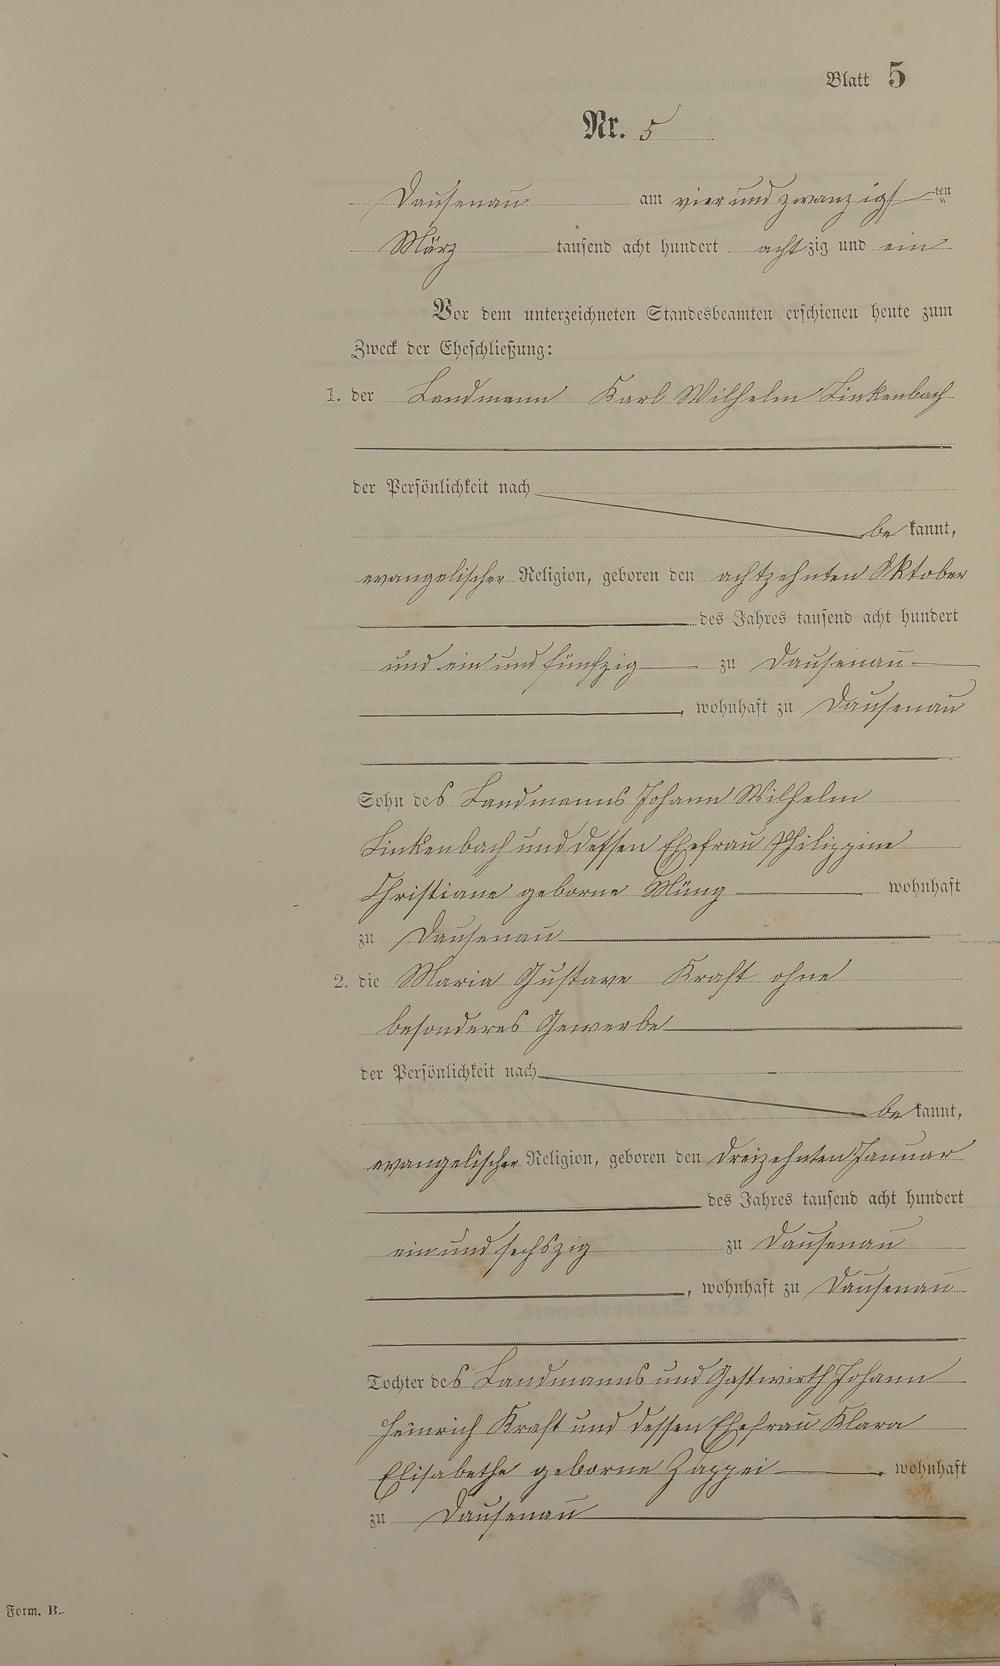 Blatt 5
Nr. 5
Dausenau am vier und zwanzigsten
März tausend acht hundert achtzig und ein
Vor dem unterzeichneten Standesbeamten erschienen heute zum
Zweck der Eheschließung:
1. der Landmann Karl Wilhelm Linkenbach
der Persönlichkeit nach
be kannt,
evangelischer Religion, geboren den achtzehnten Oktober
des Jahres tausend acht hundert
und ein und fünfzig zu Dausenau
, wohnhaft zu Dausenau
Sohn des Landmanns Johann Wilhelm
Linkenbach und dessen Ehefrau Philippine
Christiane geborne wohnhaft
zu Dausenau
2. die Maria Gustave Kraft ohne
besonderes Gewerbe
der Persönlichkeit nach
be kannt,
evangelischer Religion, geboren den dreizehnten Januar
des Jahres tausend acht hundert
ein und sechszig zu Dausenau
, wohnhaft zu Dausenau
Tochter des Landmanns und Gastwirth Johann
Heinrich Kraft und dessen Ehefrau Klara
Elisabethe geborne Zappei, wohnhaft
zu Dausenau
Form. B.